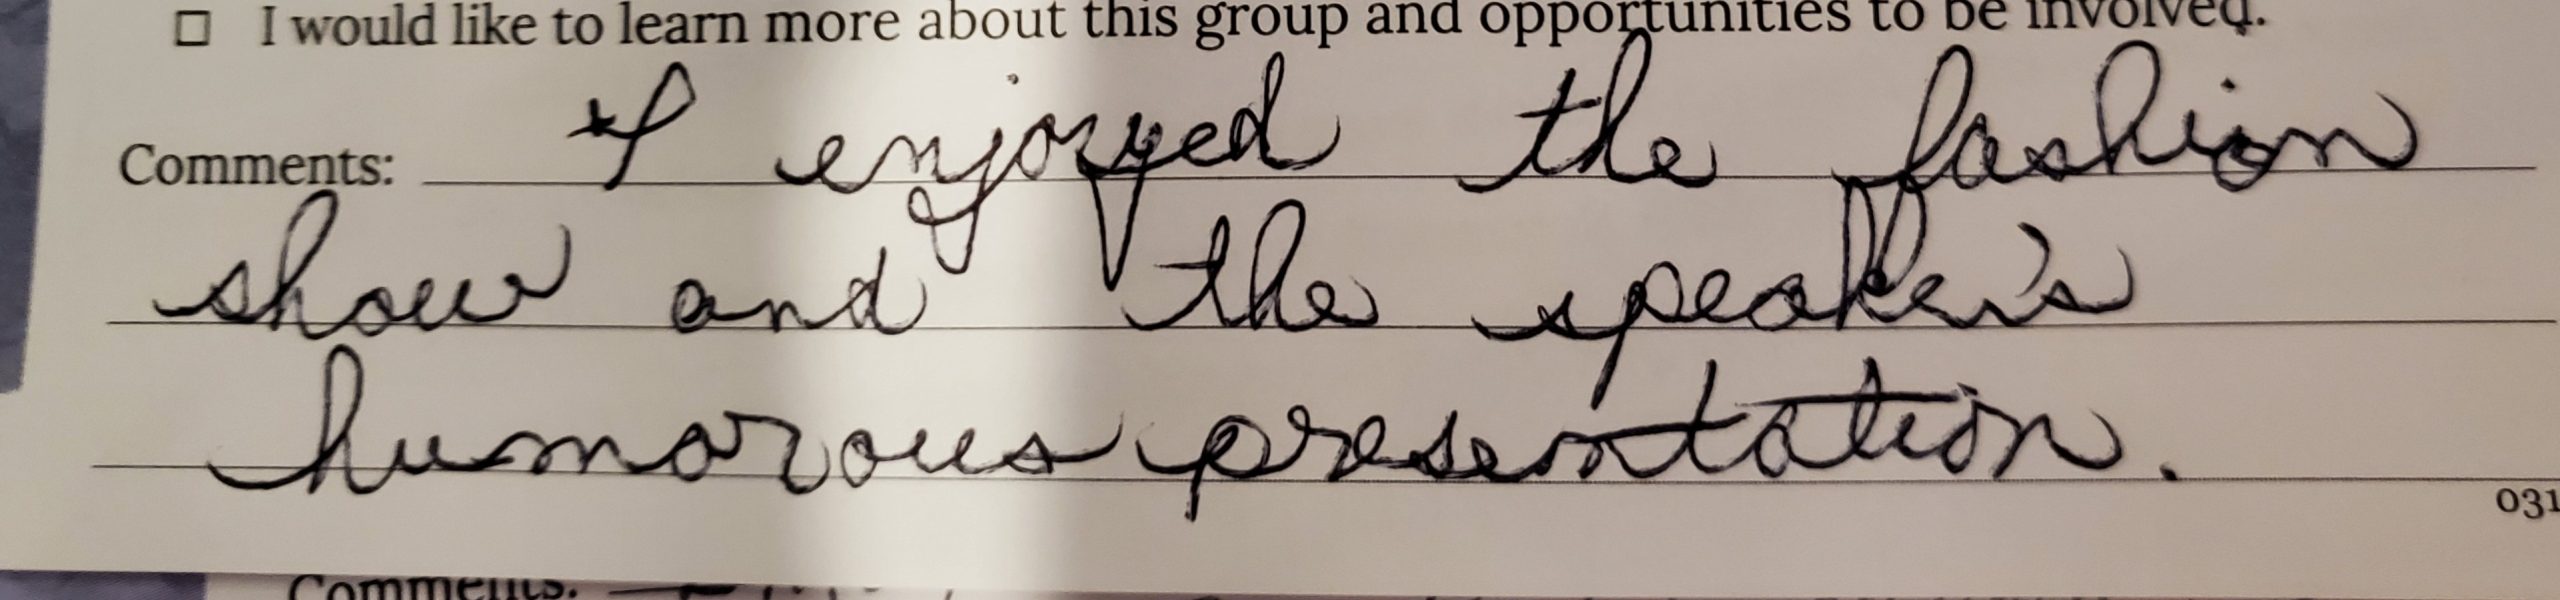 ☐ I would like to learn more about this group and opportunities to be involved.
Comments: I enjoyed the fashion
show and the speaker's
humorous presentation.
031
Comments: